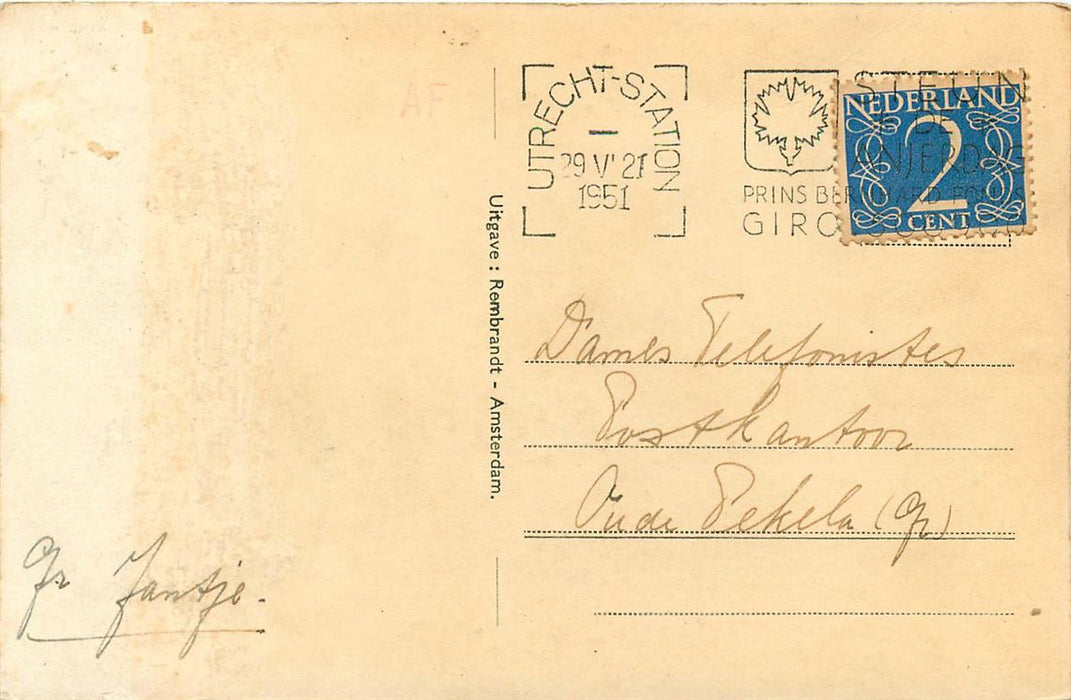 UTRECHT-STATION
29 V' 21
1951
STEUN
DE
ANJERDAG
PRINS BERNHARD FONDS
GIRO
NEDERLAND
2
CENT
Uitgave : Rembrandt - Amsterdam.
Dames Telefonistes
Postkantoor
Oude Pekela (Gr)
Gr Jantje.